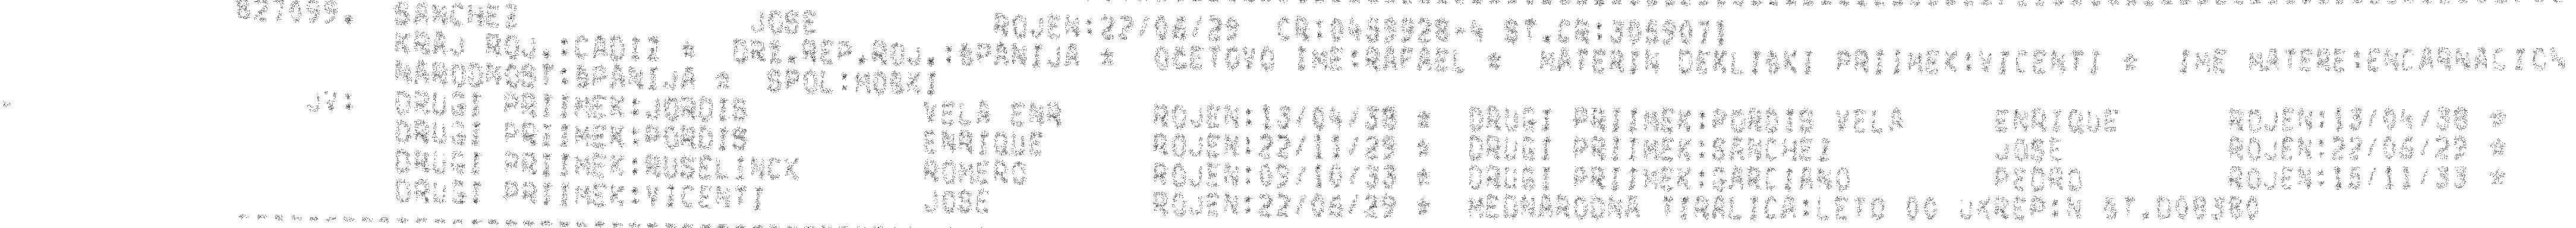 827099. SANCHEZ JOSE ROJEN:22/06/29 CR:0459928-4 ST.CR:3059071
KRAJ ROJ.:CADIZ * DRZ.REP.ROJ.:SPANIJA * OCETOVO IME:RAFAEL * MATERIN DEKLISKI PRIIMEK:VICENTI * IME MATERE:ENCARNACION
NARODNOST:SPANIJA * SPOL:MOSKI
JV: DRUGI PRIIMEK:JORDIS VELA ENR ROJEN:13/04/38 * DRUGI PRIIMEK:PORDIS VELA ENRIQUE ROJEN:13/04/38 *
DRUGI PRIIMEK:PORDIS ENRIQUE ROJEN:22/11/29 * DRUGI PRIIMEK:SANCHEZ JOSE ROJEN:22/06/29 *
DRUGI PRIIMEK:RUSELINCK ROMERO ROJEN:09/10/33 * DRUGI PRIIMEK:GARCIANO PEDRO ROJEN:15/11/33 *
DRUGI PRIIMEK:VICENTI JOSE ROJEN:22/06/29 * MEDNARODNA TIRALICA:LETO 00 UKREP:N ST.D08380